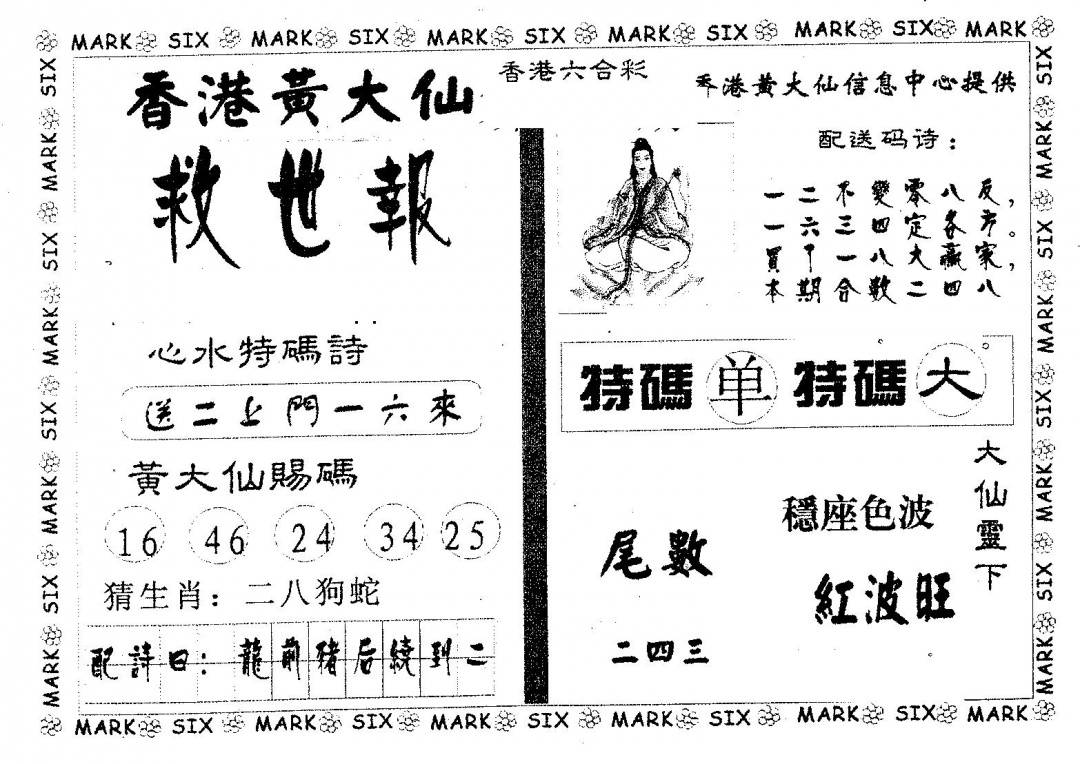 MARK SIX MARK SIX MARK SIX MARK SIX MARK SIX MARK
香港黃大仙
救世報
心水特碼詩
送二上門一六來
黃大仙賜碼
16 46 24 34 25
猜生肖：二八狗蛇
配詩曰：龍前豬后繞到二
香港六合彩
香港黃大仙信息中心提供
配送码诗：
一二不變零八反，
一六三四定各方。
買下一八大贏家，
本期合数二四八
特碼单 特碼大
大仙靈下
穩座色波
紅波旺
尾數
二四三
SIX MARK SIX MARK SIX MARK SIX MARK
MARK SIX MARK SIX MARK SIX MARK SIX
MARK SIX MARK SIX MARK SIX MARK SIX MARK SIX MARK